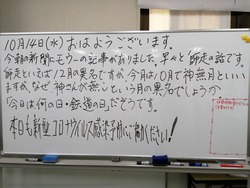 10月14日(水) おはようございます。
今朝の新聞にモウ一の記事がありました。早々と「師走」の話です。
師走といえば12月の異名ですが、今月は10月で神無月といい
ますが、なぜ神さんが無しという月の異名でしょうか
「今日は何の日・鉄道の日」だそうです。
本日も新型コロナウイルス感染予防にご協力ください!